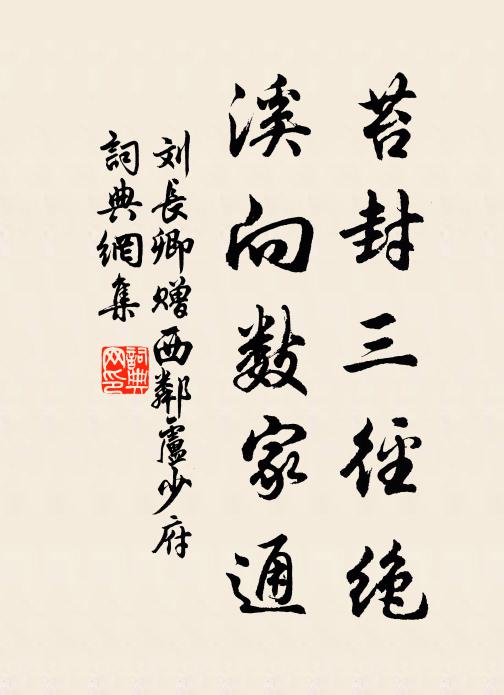 苔封三径绝
溪向数家通
刘长卿赠西鄰盧少府
詞典網集
詞典网印